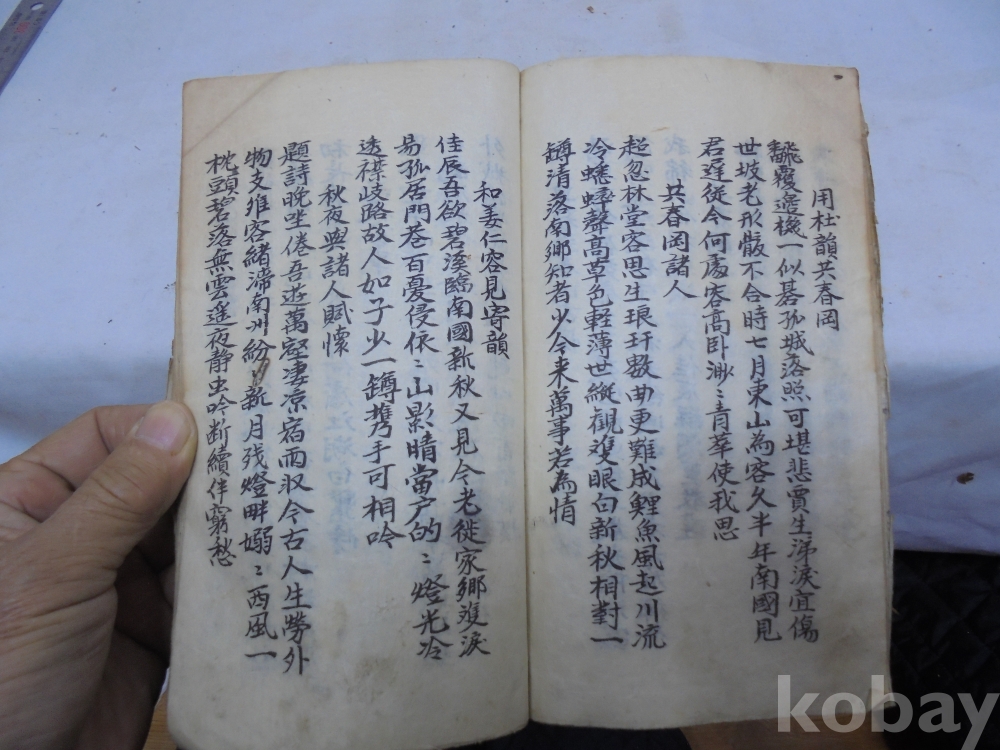 用杜韻共春岡
飜覆邊機一似碁孤城落照可堪悲賈生涕淚宜傷
世坡老形骸不合時七月東山為客久半年南國見
君遲從今何處容高卧渺〻青華使我思
共春岡諸人
超忽林堂客思生琅玕數曲更難成鯉魚風起川流
冷蟋蟀聲高草色輕薄世縱觀雙眼白新秋相對一
罇清落南鄉知者少今来萬事若為情
和姜仁容見寄韻
佳辰吾欲碧溪臨南國新秋又見今老從家鄉雙淚
易孤居門巷百憂侵依〻山影晴當户的〻燈光冷
透襟歧路故人如子少一罇携手可相吟
秋夜與諸人賦懷
題詩晚坐倦吾遊萬壑凄凉宿雨収今古人生勞外
物支維客緒滯南州紛〻新月残燈畔嫋〻西風一
枕頭碧落無雲遙夜静虫吟断續伴窮愁
kobay